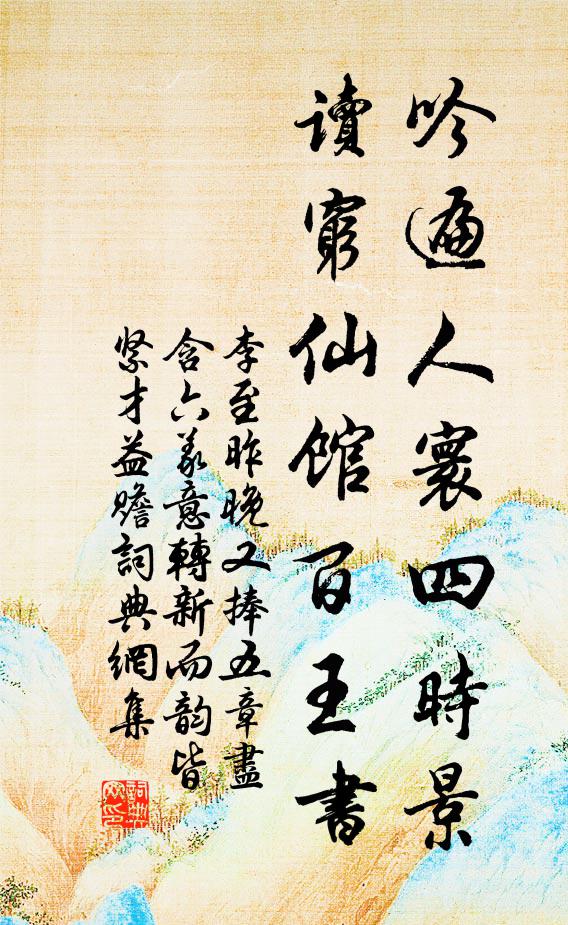 吟遍人寰四時景
讀窮仙館百王書
李至昨晚又捧五章盡
含六義意轉新而韵皆
緊才益贍詞典網集
詞典網印